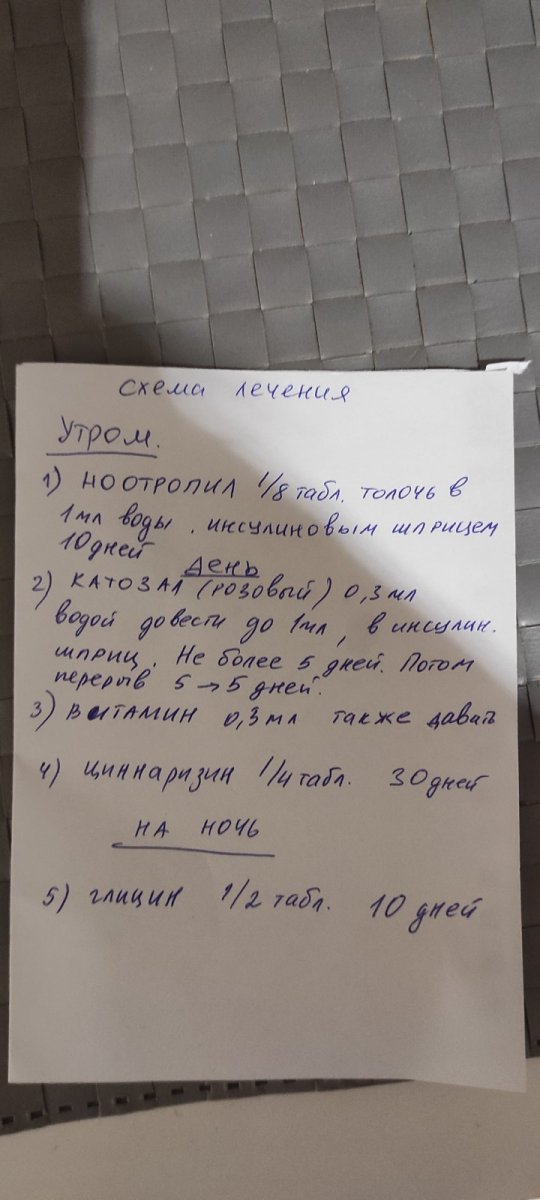 схема лечения
Утром.
1) НООТРОПИЛ 1/8 табл. толочь в
1мл воды. инсулиновым шприцем
10 дней
День
2) КАТОЗАЛ (розовый) 0,3 мл
водой довести до 1мл, в инсулин.
шприц. Не более 5 дней. Потом
перерыв 5 → 5 дней.
3) ВИТАМИН 0,3мл также давать
4) циннаризин 1/4 табл. 30 дней
НА НОЧЬ
5) глицин 1/2 табл. 10 дней